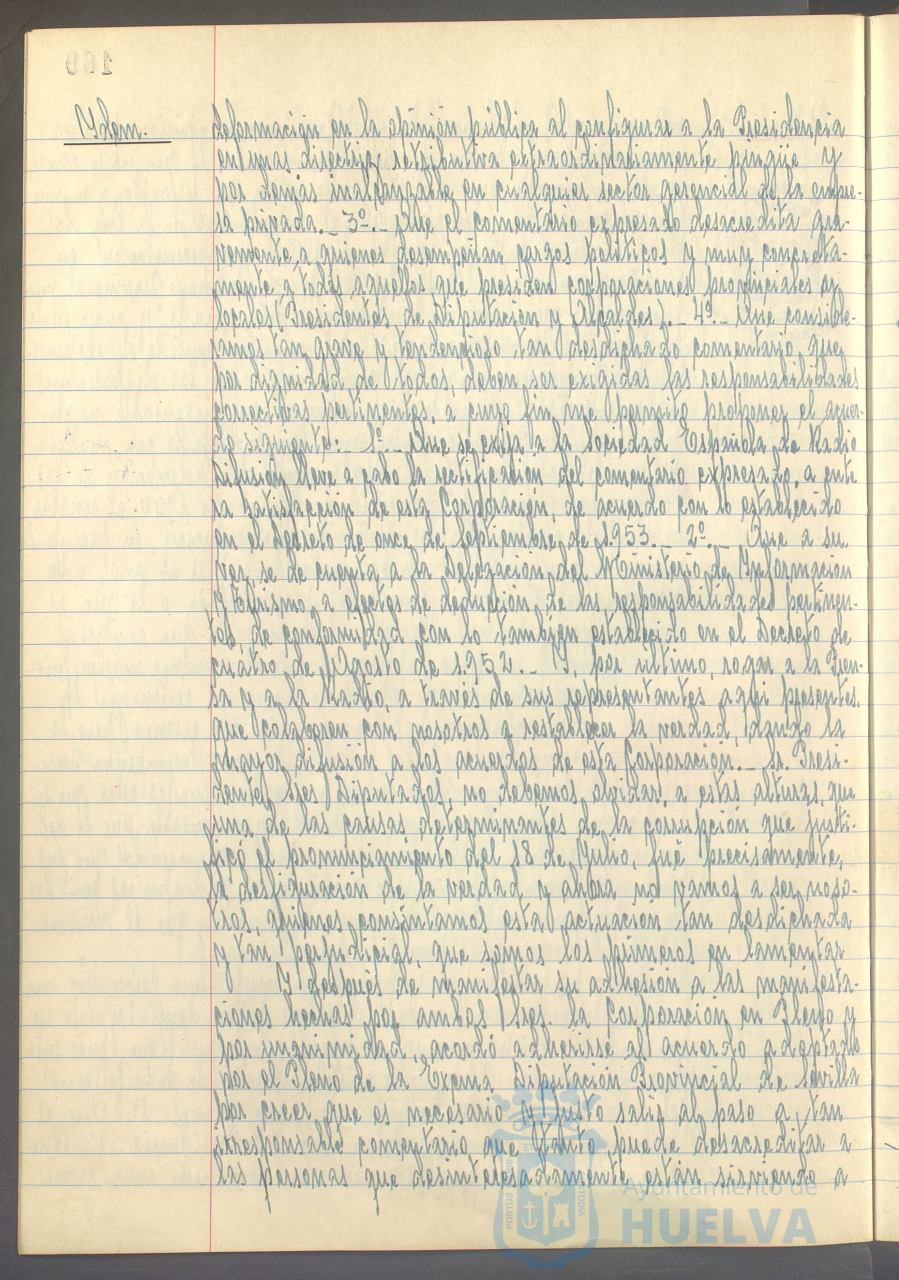 169
Idem.
deformación en la opinión pública al configurar a la Presidencia
en unas directriz retributiva extraordinariamente pingüe y
por demás inalcanzable en cualquier sector gerencial de la empre-
sa privada._ 3º._ Que el comentario expresado desacredita gra-
vemente a quienes desempeñan cargos políticos y muy concreta-
mente a todos aquellos que presiden corporaciones provinciales y
locales (Presidentes de Diputación y Alcaldes)._ 4º._ Que conside-
ramos tan grave y tendencioso, tan desdichado comentario, que
por dignidad de todos, deben ser exigidas las responsabilidades
correctivas pertinentes, a cuyo fin me permito proponer el acuer-
do siguiente:_ 1º._ Que se exija a la Sociedad Española de Radio
Difusión lleve a cabo la rectificación del comentario expresado, a ente
ra satisfacción de esta Corporación, de acuerdo con lo establecido
en el Decreto de once de Septiembre de 1.953._ 2º._ Que a su
vez, se de cuenta a la Delegación del Ministerio de Información
y Turismo, a efectos de deducción de las responsabilidades pertinen-
tes de conformidad con lo también establecido en el Decreto de
cuatro de Agosto de 1.952._ Y, por último, rogar a la Pren-
sa y a la Radio, a través de sus representantes aquí presentes,
que colaboren con nosotros a restablecer la verdad, dando la
mayor difusión a los acuerdos de esta Corporación._ Sr. Presi-
dente, Sres Diputados, no debemos olvidar, a estas alturas, que
una de las causas determinantes de la corrupción que justi-
ficó el pronunciamiento del 18 de Julio, fué precisamente,
la desfiguración de la verdad y ahora no vamos a ser noso-
tros, quienes consintamos esta actuación tan desdichada
y tan perjudicial, que somos los primeros en lamentar
Y después de manifestar su adhesión a las manifesta-
ciones hechas por ambos Sres. la Corporación en Pleno y
por unanimidad, acordó adherirse al acuerdo adoptado
por el Pleno de la Excma Diputación Provincial de Sevilla
por creer que es necesario y justo salir al paso a tan
irresponsable comentario que tanto puede desacreditar a
las personas que desinteresadamente están sirviendo a
Ayuntamiento de
HUELVA